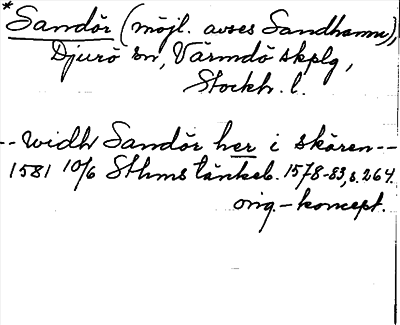 *Sandör (möjl. avses Sandhamn),
Djurö sn, Värmdö skplg,
Stockh. l.
-- widh Sandör her i skären --
1581 10/6 Sthms tänkeb. 1578-83, s. 264.
orig. - koncept.